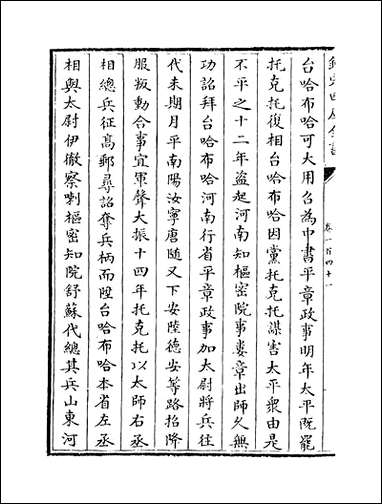 欽定四庫全書
卷一百四十一
台哈布哈可大用召為中書平章政事明年太平既罷
托克托復相台哈布哈因黨托克托謀害太平衆由是
不平之十二年盗起河南知樞密院事婁章出師久無
功詔拜台哈布哈河南行省平章政事加太尉將兵往
代未期月平南陽汝寧唐随又下安陸德安等路招降
服叛動合事宜軍聲大振十四年托克托以太師右丞
相總兵征高郵尋詔奪兵柄而陞台哈布哈本省左丞
相與太尉伊徹察喇樞密知院舒蘇代總其兵山東河